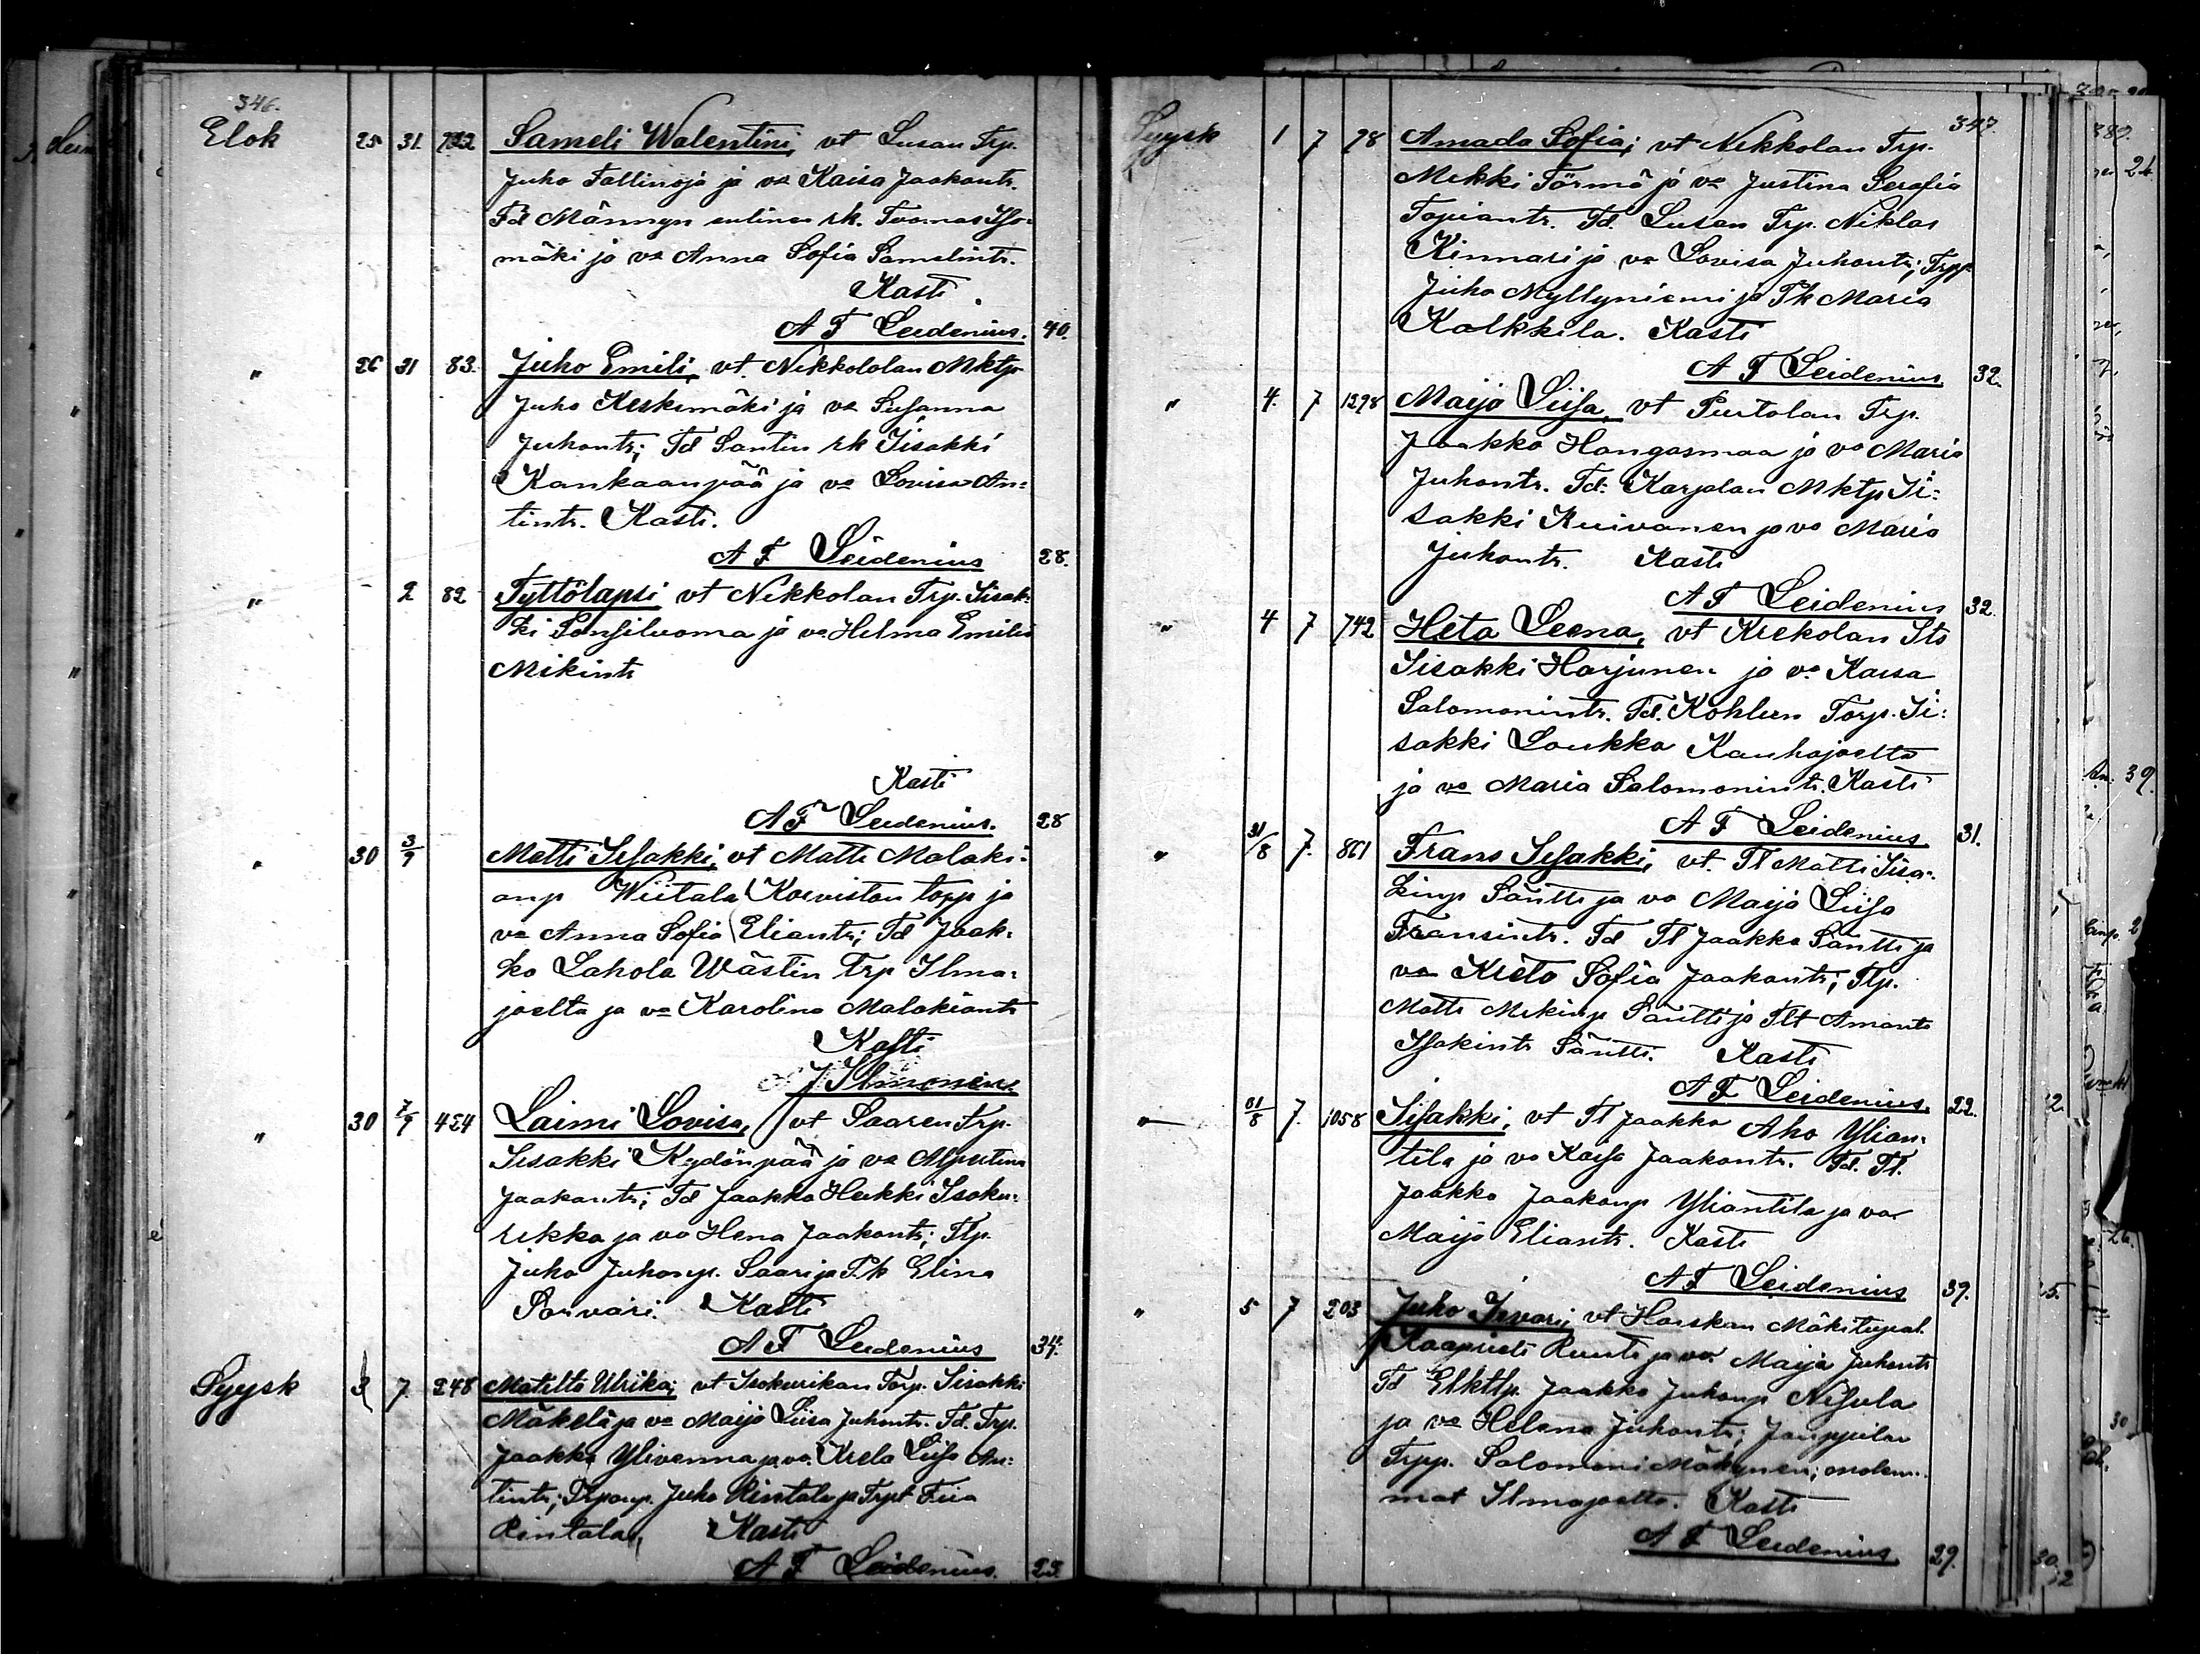 346.
Elok 25 31. 722 Sameli Walentini, vt Lusan Trp.
Juho Tallinoja ja va Kaisa Jaakontr.
Td Männyn entinen rk. Tuomas Iso-
mäki ja va Anna Sofia Samelintr.
Kasti
A F Leidenius. 40.
" 26 31 83. Juho Emili, vt. Nikkolan Mktp
Juho Keskimäki ja va Susanna
Juhontr; Td Santin rk Iisakki
Kankaanpää ja va Lovisa An=
tintr. Kasti.
A F Leidenius 28.
" 2 82 Tyttölapsi vt Nikkolan Trp. Iisak-
ki ja va Helma Emilia
Mikintr
Kasti
A F Leidenius. 28
" 30 3/9 Matti Iisakki, vt Matti Malaki-
anp Wiitala Koiviston torp ja
va Anna Sofia Eliantr; Td Jaak-
ko Lahola Wästin Trp Ilma-
joelta ja va Karolina Malakiantr
Kasti
J Ilmonen.
" 30 7/9 424 Laimi Lovisa, vt Saaren Trp.
Iisakki Kydönpää ja va Alpertina
Jaakontr; Td Jaakko Heikki Isoku-
rikka ja va Hena Jaakontr; Tlp.
Juho Juhonp. Saari ja Pk Elina
Porvari. Kasti
A F Leidenius 34.
Syysk 3 7. 248 Matilta Ulrika; vt Isokurikan Torp. Iisakki
Mäkelä ja va Maija Liisa Juhontr. Td. Trp.
Jaakko Ylivenna ja va. Kreta Liisa An-
tintr; Trpanp. Juho Rintala ja Trpt Fiia
Rintala, Kasti
A F Leidenius. 23.
347.
Syysk 1 7 78 Amada Sofia; vt Nikkolan Trp.
Mikki Törmä ja va Justina Serafia
Topiantr. Td. Lusan Trp. Niklas
Kinnari ja va Lovisa Juhontr; Trpp
Juho Myllyniemi ja Pk Maria
Kalkkila. Kasti
A F Leidenius 32.
" 4. 7 1298 Maija Liisa, vt Purtolan Trp.
Jaakko Hangasmaa ja va Maria
Juhontr. Td: Karjalan Mktp Ii=
sakki Kuivanen ja va Maria
Juhontr. Kasti
A F Leidenius 32.
" 4 7 742 Heta Leena, vt Krekolan Its
Iisakki Harjunen ja va Kaisa
Salomonintr. Td. Torp. Ii=
sakki Loukko Kauhajoelta
ja va Maria Salomonintr. Kasti
A F Leidenius. 31.
" 31/8 7. 861 Frans Iisakki, vt. Tl Matti Iisa-
kinp Säntti ja va Maija Liisa
Fransintr. Td Tl Jaakko Säntti ja
va Kreta Sofia Jaakontr; Tlp.
Matti Mikinp Säntti ja Tlt Amanta
Isakintr Säntti. Kasti
A F Leidenius. 22.
" 31/8 7. 1058 Iisakki, vt Tl Jaakko Aho Ylian-
tila ja va Kaisa Jaakontr. Td. Tl.
Jaakko Jaakonp Yliantila ja va
Maija Eliantr. Kasti
A F Leidenius 39.
" 5 7 203 Juho Iivari; vt Harskun Mäkitupal.
Kaaprieli Ranta ja va Maija Juhontr
Td Elktlp. Jaakko Juhonp Nisula
ja va Helena Juhontr; Jauppilan
Trpp. Salomoni Mäkynen; molem-
mat Ilmajoelta. Kasti
A F Leidenius 29.